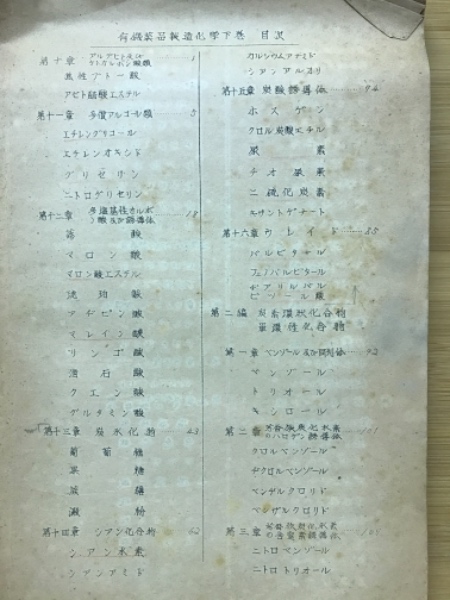 有機薬品製造化学下巻 目次
第十章 アルデヒド及ケトカルボン酸類 1
焦性ブドー酸
アセト醋酸エステル
第十一章 多價アルコール類 5
エチレングリコール
エチレンオキシド
グリセリン
ニトログリセリン
第十二章 多塩基性カルボン酸及誘導体 18
蓚酸
マロン酸
マロン酸エステル
琥珀酸
アヂピン酸
マレイン酸
リンゴ酸
酒石酸
クエン酸
グルタミン酸
第十三章 炭水化物 43
葡萄糖
蔗糖
乳糖
澱粉
第十四章 シアン化合物
シアン水素
シアンアミド
カルシウムアナミド
シアンアルカリ
第十五章 炭酸誘導体 74
ホスゲン
クロル炭酸エチル
尿素
チオ尿素
二硫化炭素
キサントゲナート
第十六章 ウレイド 85
バルビタール
フェノバルビタール
第二編 炭素環状化合物
単環性化合物
第一章 ベンゾール及同族体 92
ベンゾール
トリオール
キシロール
第二章 芳香族炭化水素のハロゲン誘導体 101
クロルベンゾール
ヂクロルベンゾール
ベンヂルクロリド
ベンザルクロリド
第三章 芳香族炭化水素の含窒素誘導体
ニトロベンゾール
ニトロトリオール